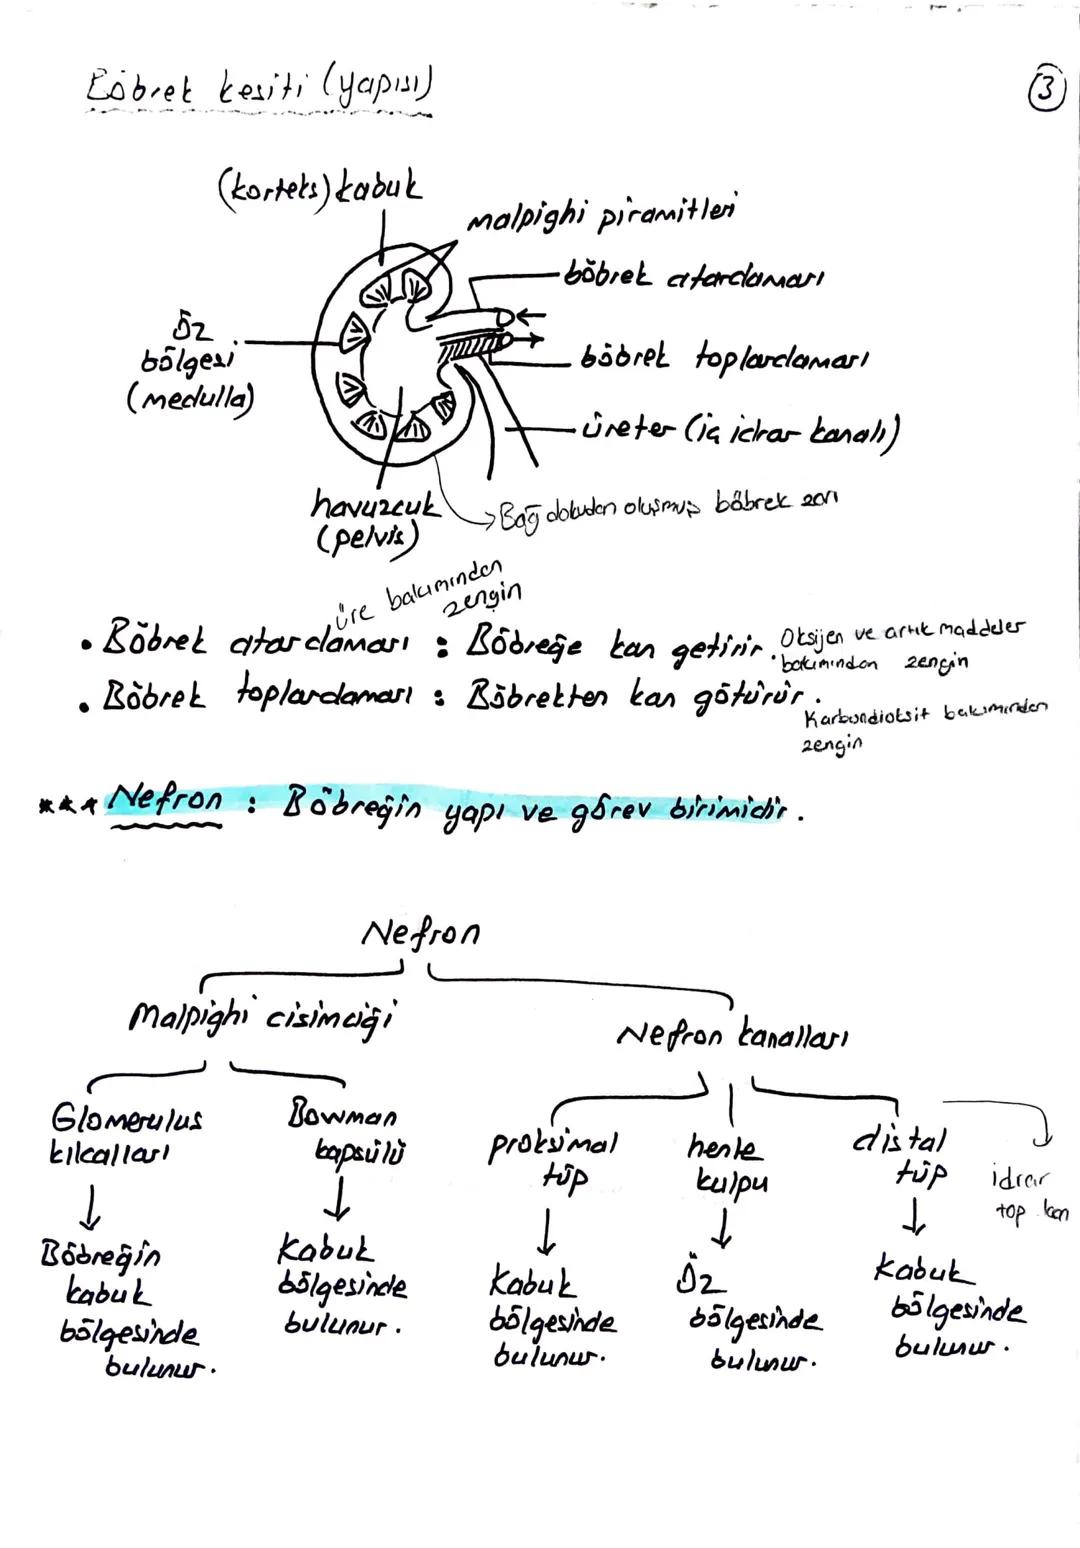 Böbrek kesiti (yapısı)
3
(korteks) kabuk
malpighi piramitleri
böbrek atardamarı
Öz
bölgesi
(medulla)
böbrek toplardamarı
üreter (iç idrar kanalı)
havuzcuk
(pelvis)
Bağ dokudan oluşmuş böbrek zarı
üre bakımından
zengin
• Böbrek atardamarı : Böbreğe kan getirir. Oksijen ve artık maddeler
bakımından zengin
• Böbrek toplardamarı : Böbrekten kan götürür.
Karbondioksit bakımından
zengin
*** Nefron : Böbreğin yapı ve görev birimidir.
Nefron
Malpighi cisimciği
Nefron kanalları
Glomerulus
kılcalları
Bowman
kapsülü
proksimal
tüp
henle
kulpu
distal
tüp
idrar
top. kan
Böbreğin
kabuk
bölgesinde
bulunur.
Kabuk
bölgesinde
bulunur.
Kabuk
bölgesinde
bulunur.
Öz
bölgesinde
bulunur.
Kabuk
bölgesinde
bulunur.